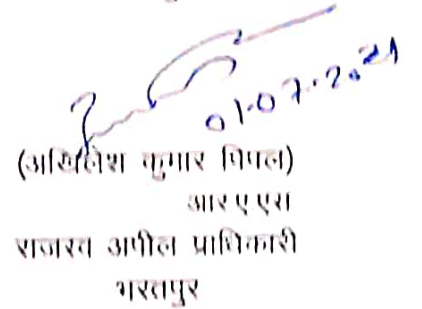 01.07.2021
(अखिलेश कुमार पिपल)
आर ए एस
राजस्व अपील प्राधिकारी
भरतपुर